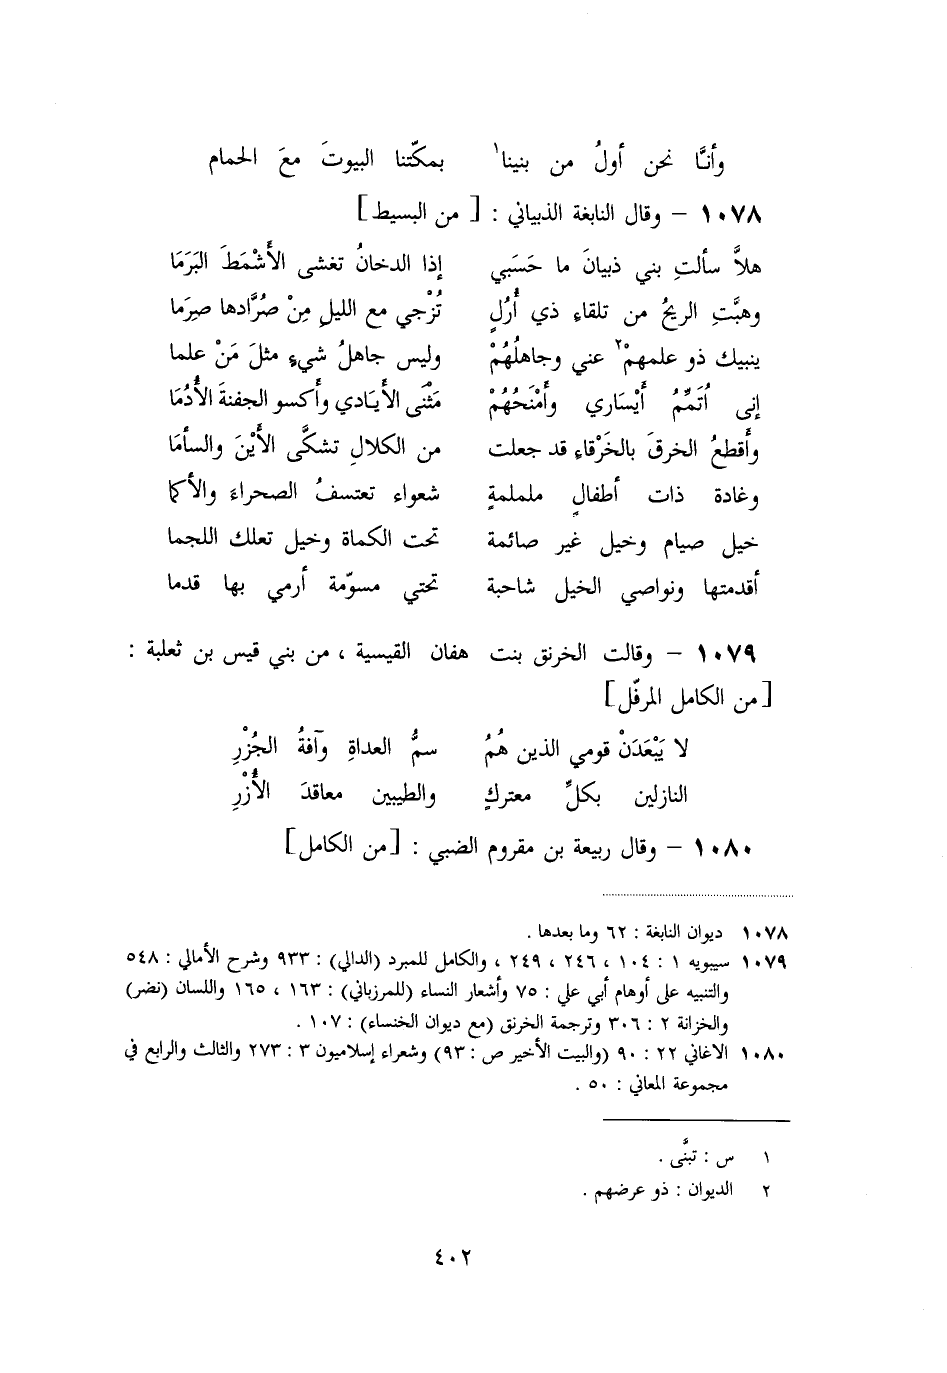 وأنَّا نحن أولُ من بنينا١ بمكّتنا البيوتَ معَ الحمام
١٠٧٨ – وقال النابغة الذبياني : [ من البسيط ]
هلاَّ سألتِ بني ذبيانَ ما حَسَبي إذا الدخانُ تغشى الأَشْمَطَ البَرَمَا
وهبَّتِ الريحُ من تلقاءِ ذي أُرُلٍ تُزْجي مع الليلِ مِنْ صُرَّادها صِرَما
ينبيك ذو علمهمْ٢ عني وجاهلُهُمْ وليس جاهلُ شيءٍ مثلَ مَنْ علما
إنى أُتَمِّمُ أَيْسَاري وأَمْنَحُهُمْ مَثْنَى الأيَادي وأَكسو الجفنةَ الأُدُمَا
وأَقطعُ الخرقَ بالخَرْقاءِ قد جعلت من الكلالِ تشكَّى الأَيْنَ والسأمَا
وغادة ذات أطفالٍ ململمةٍ شعواء تعتسفُ الصحراءَ والأكما
خيل صيام وخيل غير صائمة تحت الكماة وخيل تعلك اللجما
أقدمتها ونواصي الخيل شاحبة تحتي مسوّمة أرمي بها قدما
١٠٧٩ – وقالت الخرنق بنت هفان القيسية ، من بني قيس بن ثعلبة :
[من الكامل المرفّل]
لا يَبْعَدَنْ قومي الذين هُمُ سمُّ العداةِ وآفةُ الجُزْرِ
النازلين بكلِّ معتركٍ والطيبين معاقدَ الأُزْرِ
١٠٨٠ – وقال ربيعة بن مقروم الضبي : [من الكامل]
١٠٧٨ ديوان النابغة : ٦٢ وما بعدها .
١٠٧٩ سيبويه ١ : ١٠٤ ، ٢٤٦ ، ٢٤٩ ، والكامل للمبرد (الدالي) : ٩٣٣ وشرح الأمالي : ٥٤٨
والتنبيه على أوهام أبي علي : ٧٥ وأشعار النساء (للمرزباني) : ١٦٣ ، ١٦٥ واللسان (نضر)
والخزانة ٢ : ٣٠٦ وترجمة الخرنق (مع ديوان الخنساء) : ١٠٧ .
١٠٨٠ الاغاني ٢٢ : ٩٠ (والبيت الأخير ص : ٩٣) وشعراء إسلاميون ٣ : ٢٧٣ والثالث والرابع في
مجموعة المعاني : ٥٠ .
١ س : تبنَّى .
٢ الديوان : ذو عرضهم .
٤٠٢